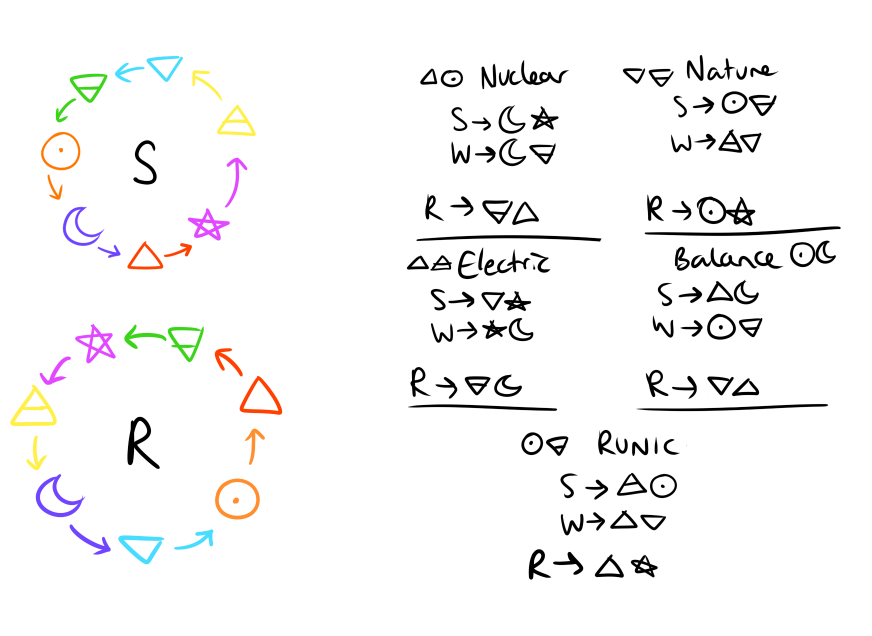 S
R
△☉ Nuclear
S → ☾☆
W → ☾🜃
R → 🜃△
▽🜃 Nature
S → ☉🜃
W → 🜁▽
R → ☉☆
△🜁 Electric
S → ▽☆
W → ☆☾
R → 🜃☾
Balance ☉☾
S → △☾
W → ☉🜃
R → ▽△
☉🜃 RUNIC
S → 🜁☉
W → △▽
R → △☆